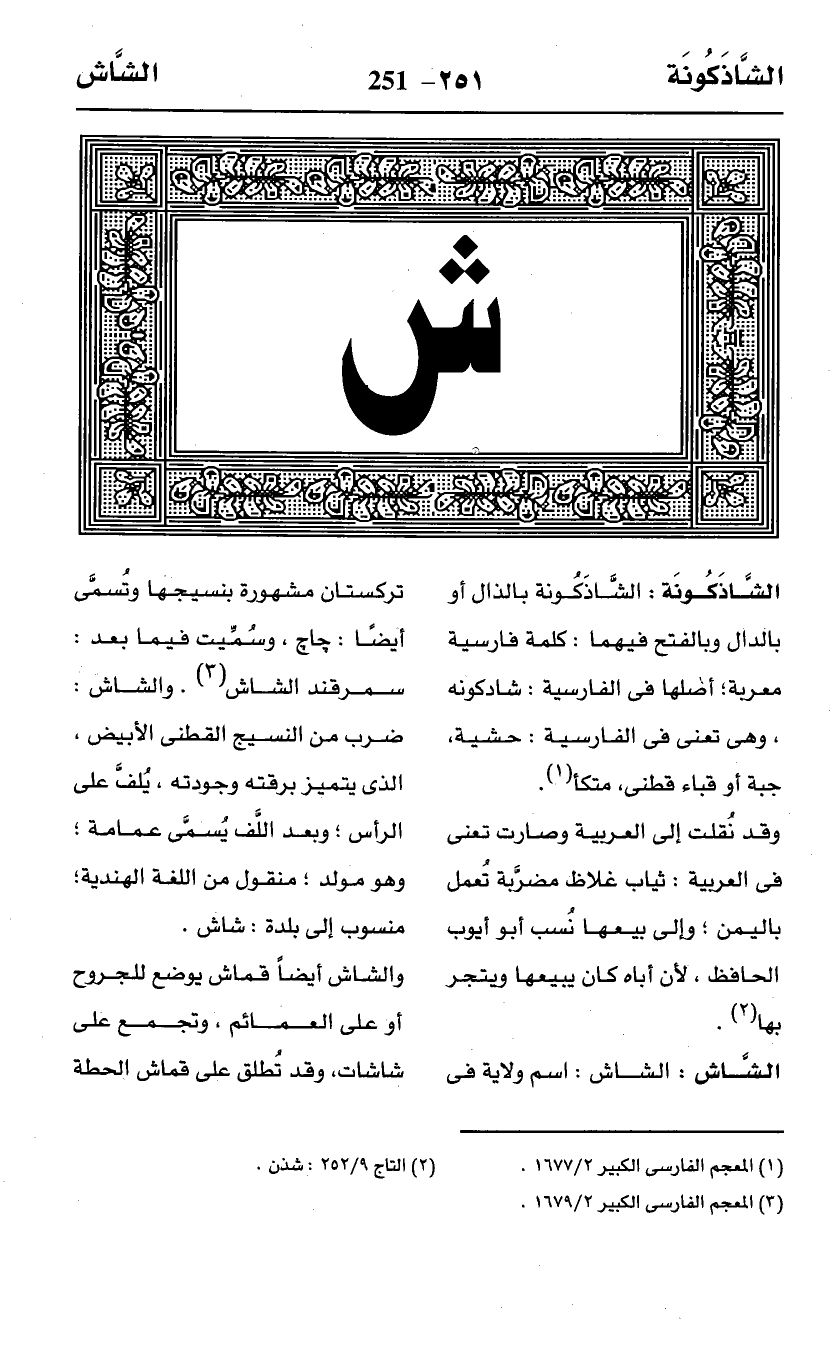 الشَّاذَكُونَة
٢٥١- 251
الشَّاش
ش
الشَّـاذَكُـونَة : الشَّـاذَكُـونة بـالذال أو
بالدال وبالفتح فيهما : كلمة فارسية
معربة؛ أصلها فى الفارسية : شادكونه
، وهى تعنى فى الفـارسـية : حـشـية،
جبة أو قباء قطنى، متكأ(١).
وقـد نُقلت إلى العربية وصـارت تعنى
فى العربية : ثياب غلاظ مضرَّبة تُعمل
باليـمن ؛ وإلى بيـعـهـا نُسب أبو أيوب
الحافظ ، لأن أباه كـان يبيـعهـا ويتجـر
بها(٢) .
الشَّــاش : الشــاش : اسم ولاية فى
تركسـتـان مشـهورة بنسـيجـهـا وتُسـمَّى
أيضًـا : چاچ ، وسُمِّيت فـيـمـا بعـد :
سـمـرقند الشـاش(٣) . والشـاش :
ضرب من النسـيج القـطنى الأبيض ،
الذى يتميز برقته وجودته ، يُلفَّ على
الرأس ؛ وبعـد اللَّف يُسـمَّى عـمـامـة ؛
وهـو مـولد ؛ منقـول من اللغـة الهنـدية؛
منسوب إلى بلدة : شاش .
والشـاش أيضـاً قـمـاش يوضـع للجـروح
أو على العـمـائم ، وتجـمـع على
شاشات، وقد تُطلق على قماش الحطة
(١) المعجم الفارسى الكبير ١٦٧٧/٢ .
(٢) التاج ٢٥٢/٩ : شذن .
(٣) المعجم الفارسى الكبير ١٦٧٩/٢ .